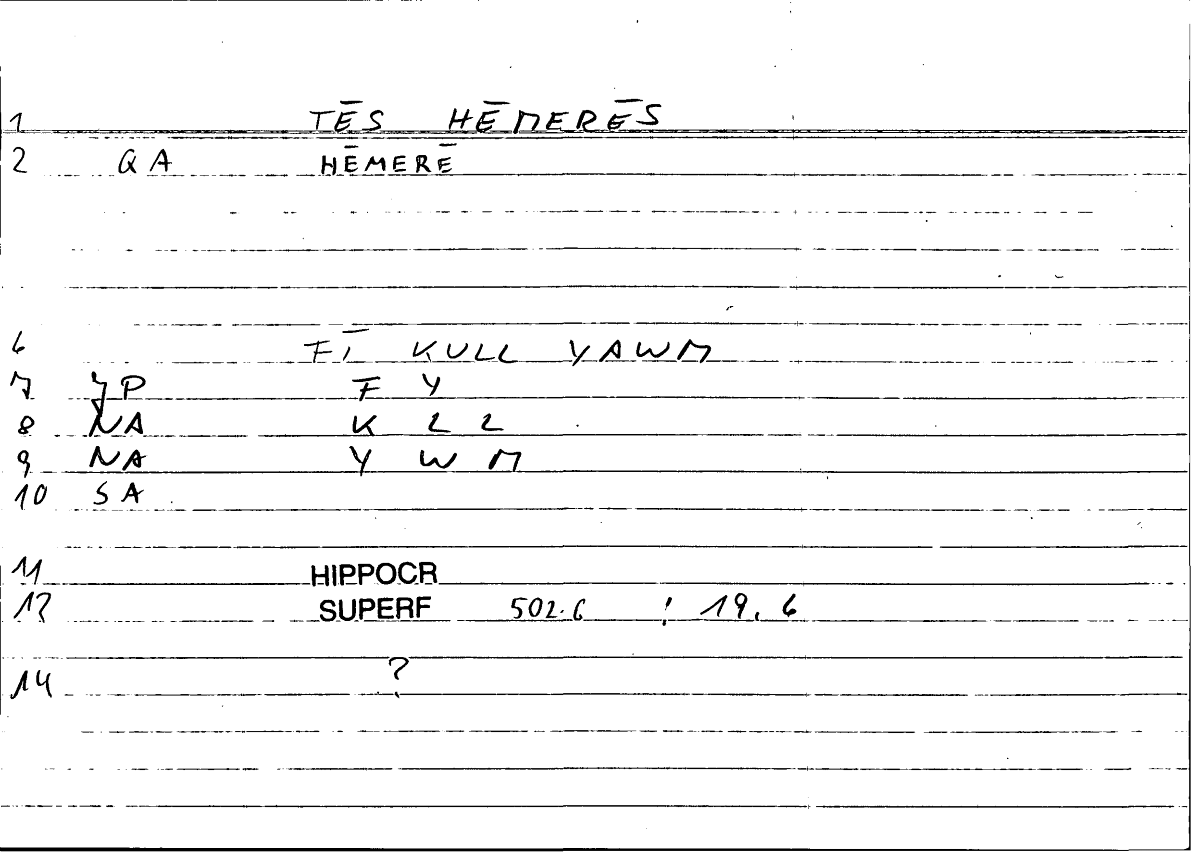 1 TĒS HĒMERĒS
2 QA HĒMERĒ
6 FĪ KULL YAWM
7 JP F Y
8 NA K L L
9 NA Y W M
10 SA
11 HIPPOCR
13 SUPERF 502.6 ; 19.6
14 ?